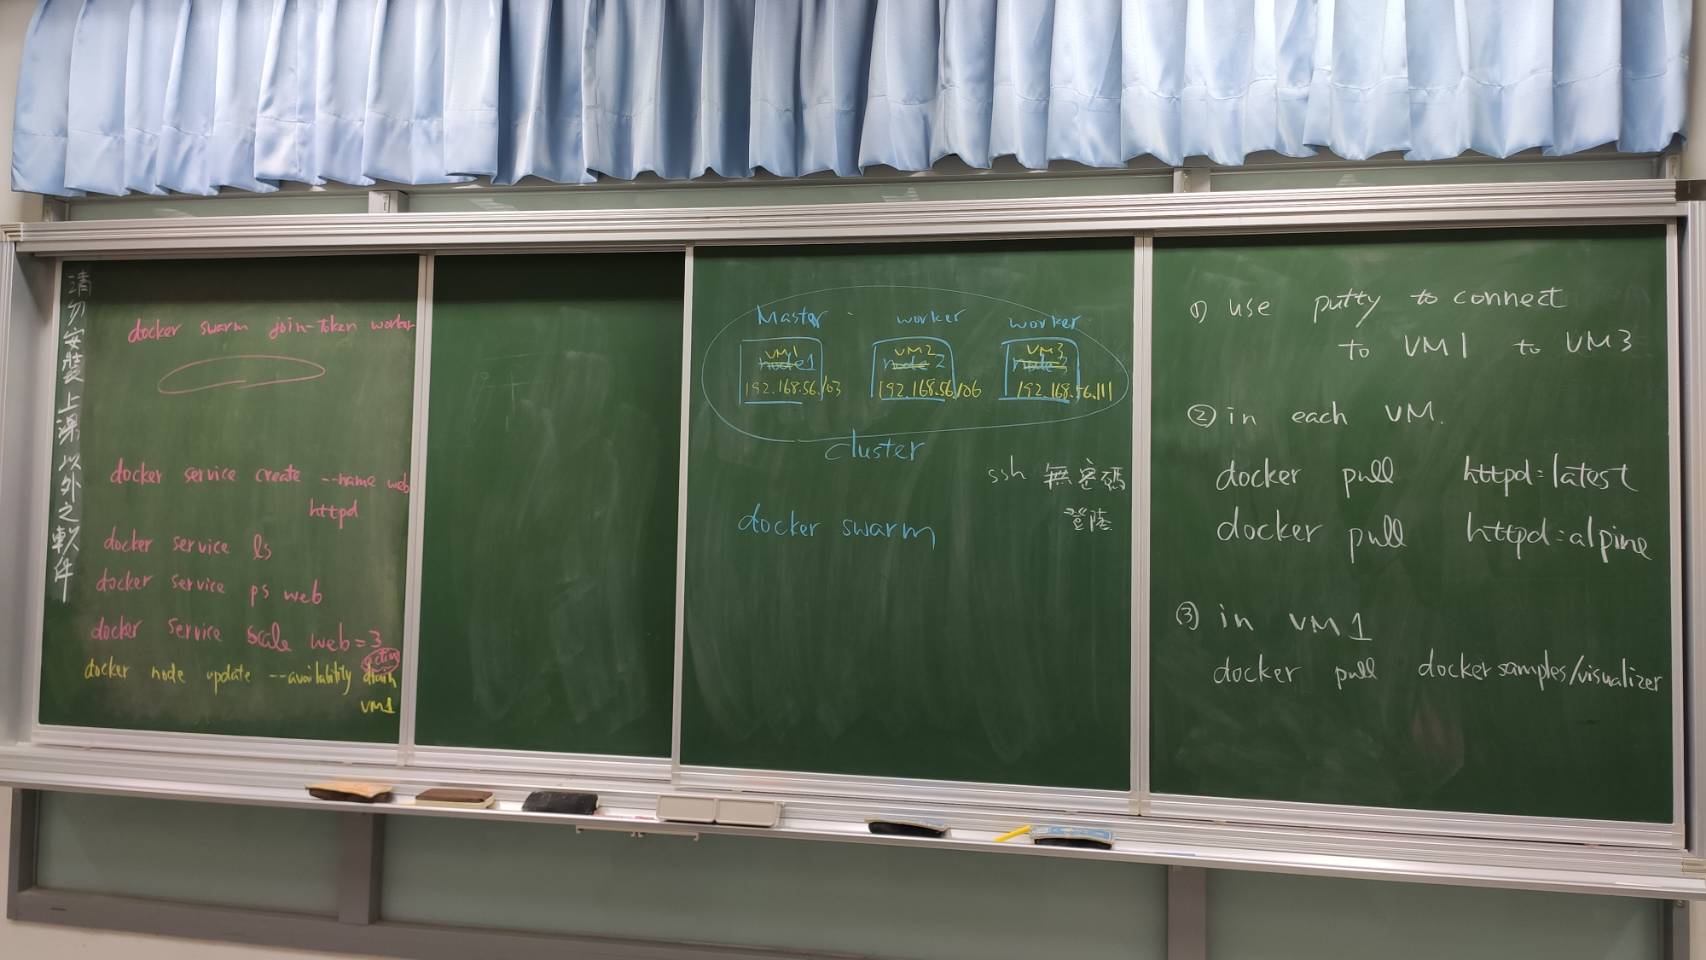 請勿安裝上課以外之軟件
docker swarm join-token worker
docker service create --name web
httpd
docker service ls
docker service ps web
docker service scale web=3
active
docker node update --availability drain
VM1
Master worker worker
VM1 VM2 VM3
node1 node2 node3
192.168.56.103 192.168.56.106 192.168.56.111
cluster
ssh 無密碼
登陸
docker swarm
① use putty to connect
to VM1 to VM3
② in each VM.
docker pull httpd:latest
docker pull httpd:alpine
③ in VM1
docker pull dockersamples/visualizer